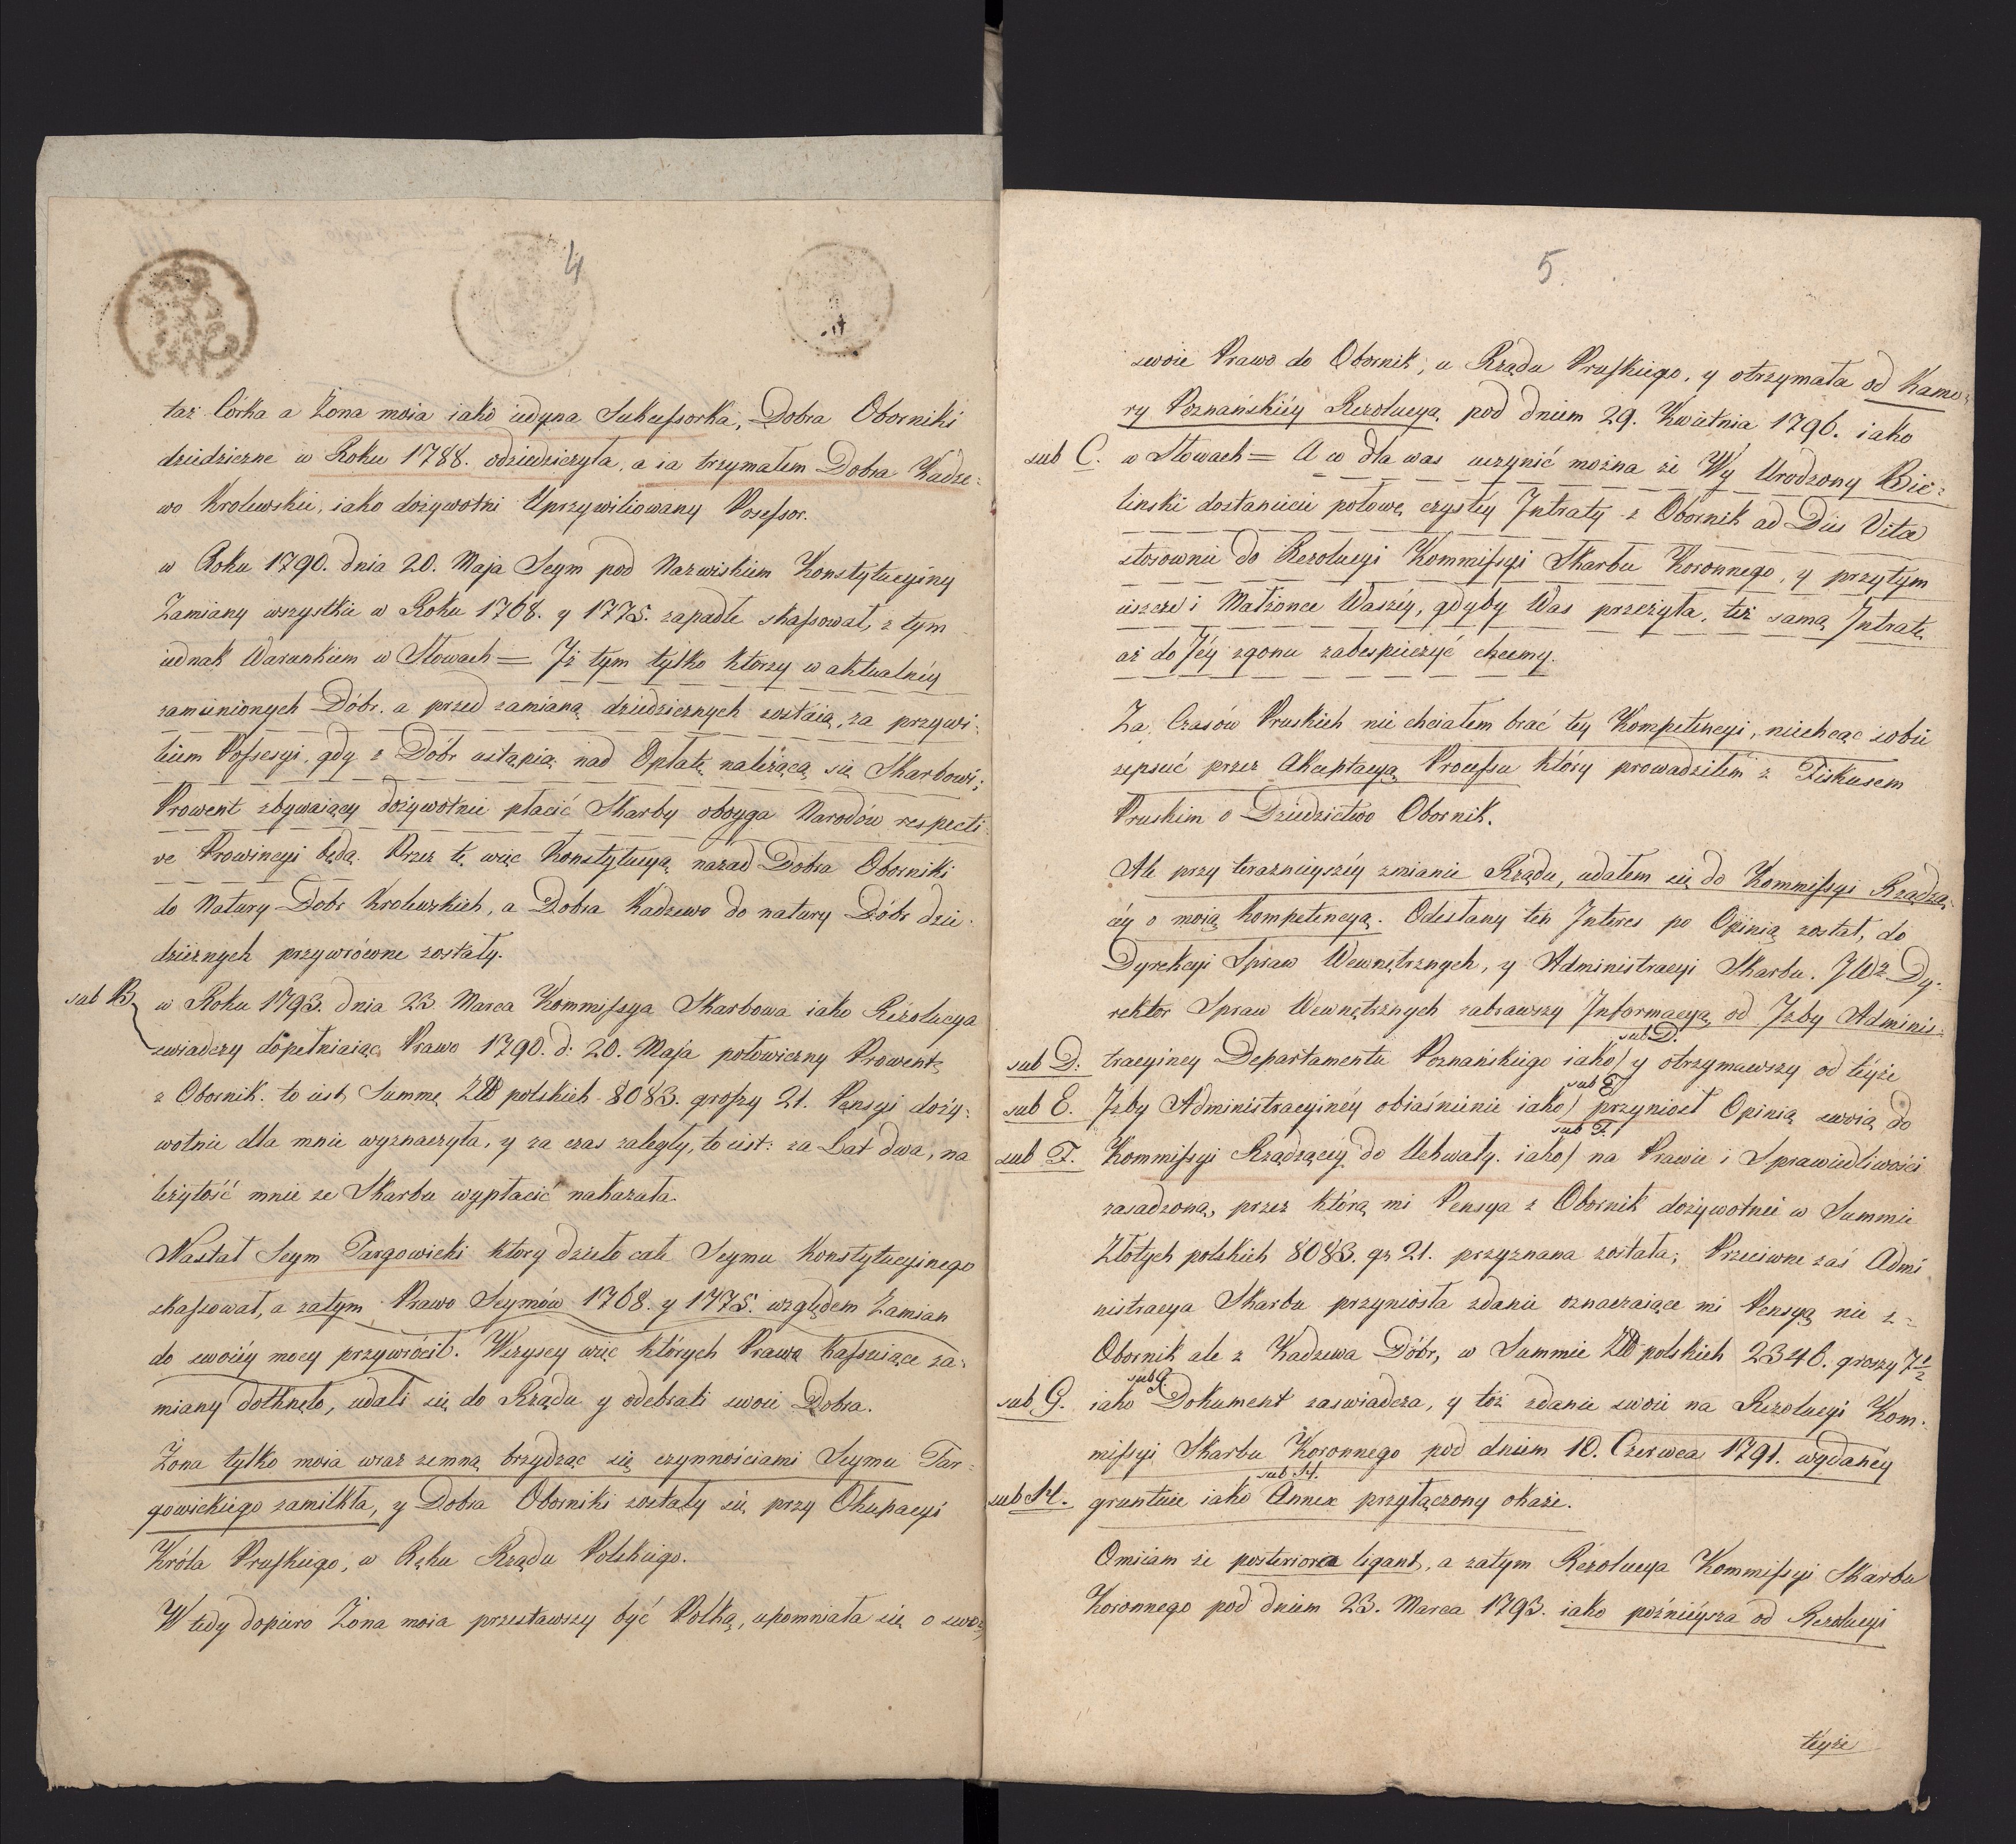 4
taż Córka a Żona moia iako iedyna Sukcessorka, Dobra Oborniki
dziedziczne w Roku 1788. odziedziczyła, a ia trzymałem Dobra Kadze-
wo Krolewskie, iako dożywotni Uprzywiliowany Possessor.
w Roku 1790. dnia 20. Maja Seym pod Nazwiskiem Konstytucyiny
Zamiany wszystkie w Roku 1768. y 1775. zapadłe skassował, z tym
iednak Warunkiem w Słowach = Iż tym tylko ktorzy w aktualnéy
zamienionych Dóbr. a przed zamianą dziedzicznych zostaią, za przywi-
leiem Possesyi, gdy z Dóbr ustąpią nad Opłatę należącą się Skarbowi;
Prowent zbywaiący dożywotnie płacić Skarby oboyga Narodów respecti
ve Prowincyi będą. Przez tę więc Konstytucyą nazad Dobra Oborniki
do Natury Dobr Krolewskich, a Dobra Kadzewo do natury Dóbr dzie-
dzicznych przywrówne zostały.
sub B. w Roku 1793. dnia 23. Marca Kommissya Skarbowa iako Rezolucya
zwiadczy dopełniaiąc Prawo 1790. d: 20. Maja połowiczny Prowent
z Obornik. to iest Summę Zł polskich 8083. groszy 21. Pensyi doży-
wotnie dla mnie wyznaczyła, y za czas zaległy, to iest: za Lat dwa, na
leżytość mnie ze Skarbu wypłacić nakazała.
Nastał Seym Targowicki ktory dzieło całe Seymu Konstytucyinego
skassował, a zatym Prawo Seymów 1768. y 1775. względem Zamian
do swoiéy mocy przywrócił. Wszyscy więc których Prawa kassuiące za-
miany dotknęło, udali się do Rządu y odebrali swoie Dobra.
Żona tylko moia wraz zemną brzydząc się czynnościami Seymu Tar-
gowickiego zamilkła, y Dobra Oborniki zostały się przy Okupacyi
Króla Pruskiego, w Ręku Rządu Polskiego.
Wtedy dopiero Żona moia przestawszy być Polką, upomniała się o swoie
5.
swoie Prawo do Obornik, u Rządu Pruskiego, y otrzymała od Kame-
ry Poznańskiéy Rezolucyą pod dniem 29. Kwietnia 1796. iako
sub C. w Słowach = A co dla was uczynić można że Wy Urodzony Bie-
linski dostaniecie połowę czystéy Intraty z Obornik ad Dies Vitæ
stosownie do Rezolucyi Kommissyi Skarbu Koronnego, y przytym
ieszcze i Małżonce Waszéy, gdyby Was przeżyła, też samą Intratę
aż do Jéy zgonu zabespieczyć chcemy.
Za Czasów Pruskich nie chciałem brać tey Kompetencyi, niechcąc sobie
zepsuć przez Akceptacyą Processu który prowadziłem z Fiskusem
Pruskim o Dziedzictwo Obornik.
Ale przy teraznieyszéy zmianie Rządu, udałem się do Kommissyi Rządzą-
céy o moią kompetencyą. Odesłany ten Interes po Opinią został, do
Dyrekcyi Spraw Wewnętrznych, y Administracyi Skarbu. JWż Dy-
rektor Spraw Wewnętrznych zabrawszy Informacyą od Izby Adminis-
sub D.
sub D: tracyiney Departamentu Poznańskiego iako) y otrzymawszy od téyże
sub E
sub E. Izby Administracyinéy obiaśnienie iako) przyniosł Opinią swoią do
sub F.
sub F. Kommissyi Rządzącéy do Uchwały. iako) na Prawie i Sprawiedliwości
zasadzoną, przez którą mi Pensya z Obornik dożywotnie w Summie
Złotych polskich 8083. gr 21. przyznana została; Przeciwne zaś Admi
nistracya Skarbu przyniosła zdanie oznaczaiące mi Pensyą nie z-
Obornik ale z Kadzewa Dóbr, w Summie Zł polskich 2346. groszy 7½
sub G.
sub G. iako Dokument zaswiadcza, y toż zdanie swoie na Rezolucyi Kom-
missyi Skarbu Koronnego pod dniem 10. Czerwca 1791. wydanéy
sub H.
sub H. gruntuie iako Annex przyłączony okaże.
Omiiam że posteriora ligant, a zatym Rezolucya Kommissyi Skarbu
Koronnego pod dniem 23. Marca 1793. iako pożnieysza od Rezolucyi
téyże